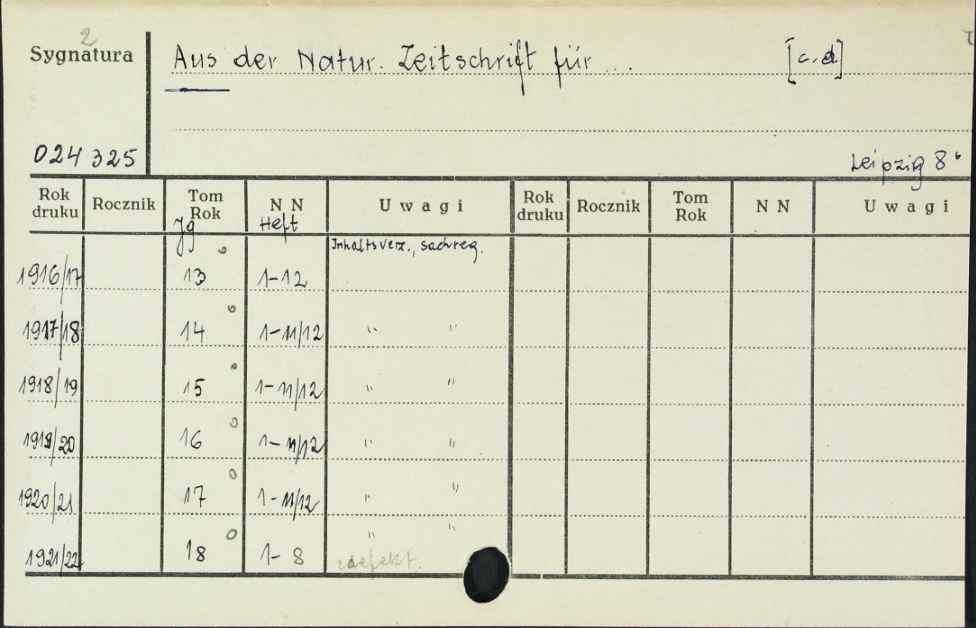 2
Sygnatura
Aus der Natur. Zeitschrift für ... [c.d.]
024325
Leipzig 8°
Rok druku Rocznik Tom Rok N N U w a g i Rok druku Rocznik Tom Rok N N U w a g i
Jg Heft
Inhaltsverz., sachreg.
1916/17 13 ° 1-12
1917/18 14 ° 1-11/12 " "
1918/19 15 ° 1-11/12 " "
1919/20 16 ° 1-11/12 " "
1920/21 17 ° 1-11/12 " "
1921/22 18 ° 1-8 " "
defekt.